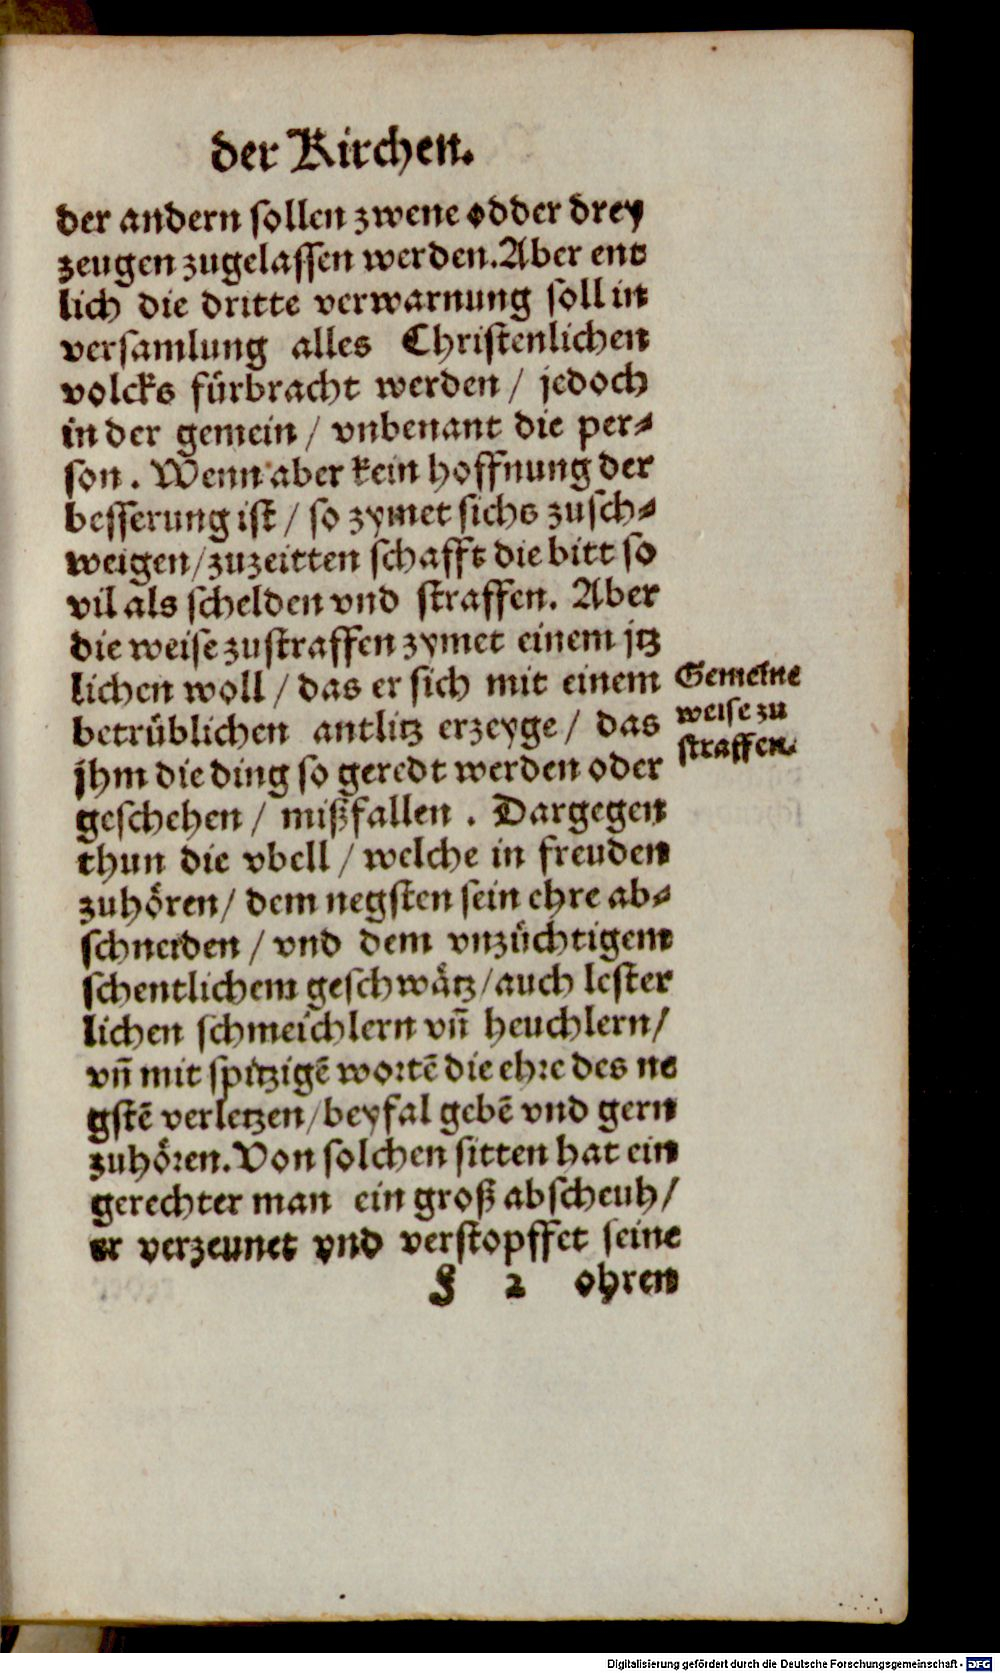 der Kirchen.
der andern sollen zwene odder drey
zeugen zugelassen werden. Aber ent
lich die dritte verwarnung soll in
versamlung alles Christenlichen
volcks fürbracht werden / jedoch
in der gemein / vnbenant die per⸗
son. Wenn aber kein hoffnung der
besserung ist / so zymet sichs zusch⸗
weigen / zuzeitten schafft die bitt so
vil als schelden vnd straffen. Aber
die weise zustraffen zymet einem jtz
lichen woll / das er sich mit einem
betrüblichen antlitz erzeyge / das
jhm die ding so geredt werden oder
geschehen / mißfallen. Dargegen
thun die vbell / welche in freuden
zuhören / dem negsten sein ehre ab⸗
schneiden / vnd dem vnzüchtigem
schentlichem geschwätz / auch lester
lichen schmeichlern vn̄ heuchlern /
vn̄ mit spitzigē wortē die ehre des ne
gstē verletzen / beyfal gebē vnd gern
zuhören. Von solchen sitten hat ein
gerechter man ein groß abscheuh /
er verzeunet vnd verstopffet seine
F 2 ohren
Gemeine
weise zu
straffen.
Digitalisierung gefördert durch die Deutsche Forschungsgemeinschaft - DFG